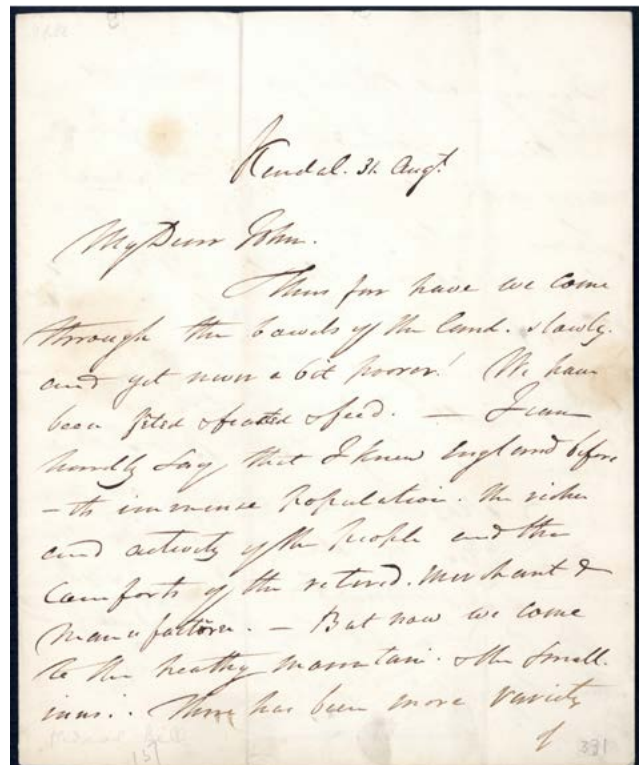 Kendal. 31 Augt.
My Dear John.
Thus far have we come
through the bowels of the land. slowly.
and yet never a bit poorer! We have
been feted & feasted & feed. — I can
hardly say that I knew England before
— its immense population. the riches
and activity of the people and the
comforts of the retired. Merchant &
manufacturer. — But now we come
to the heathy mountain. & the small.
inns.. There has been more variety
of
391
151